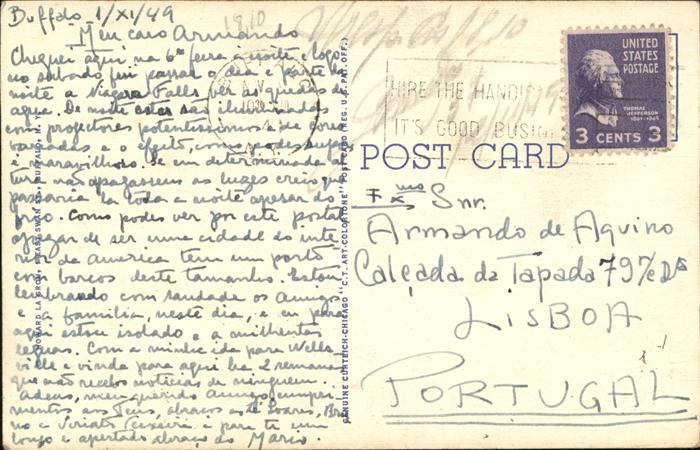 Buffalo, 1/XI/49
Meu caro Armando
Cheguei aqui, na 6ª feira á noite e logo
no sabado fui passar o dia e parte da
noite a Niagara Falls ver as quedas de
agua. De noite estas são iluminadas
com projectores potentissimos e de cores
variadas e o efeito, como podes supor
é maravilhoso. Se em determinada al-
tura não apagassem as luzes creio que
passaria lá toda a noite apesar do
frio. Como podes ver por este postal
apezar de ser uma cidade do inte
rior da America tem um porto
com barcos deste tamanho. Estou
lembrando com saudade os amigos
e a familia, neste dia, e eu para
aqui estou isolado e a milhentas
leguas. Com a minha ida para Wells-
ville e vinda para aqui ha 2 semanas
que não recebo noticias de ninguem.
Adeus, meu querido amigo cumpri-
mentos aos Teus, abraços ao Soares, Bru
no e Viriato Teixeira e para ti um
longo e apertado abraço do Mario.
18.10
HIRE THE HANDIC
IT'S GOOD BUSIN
UNITED
STATES
POSTAGE
THOMAS
JEFFERSON
3 CENTS 3
POST CARD
Exmo Snr.
Armando de Aquino
Calçada da Tapada 79 7/c Dto
LISBOA
PORTUGAL
GENUINE CURTEICH-CHICAGO "C.T. ART-COLORTONE" POST CARD (REG. U.S. PAT. OFF.)
BUFFALO, N. Y.